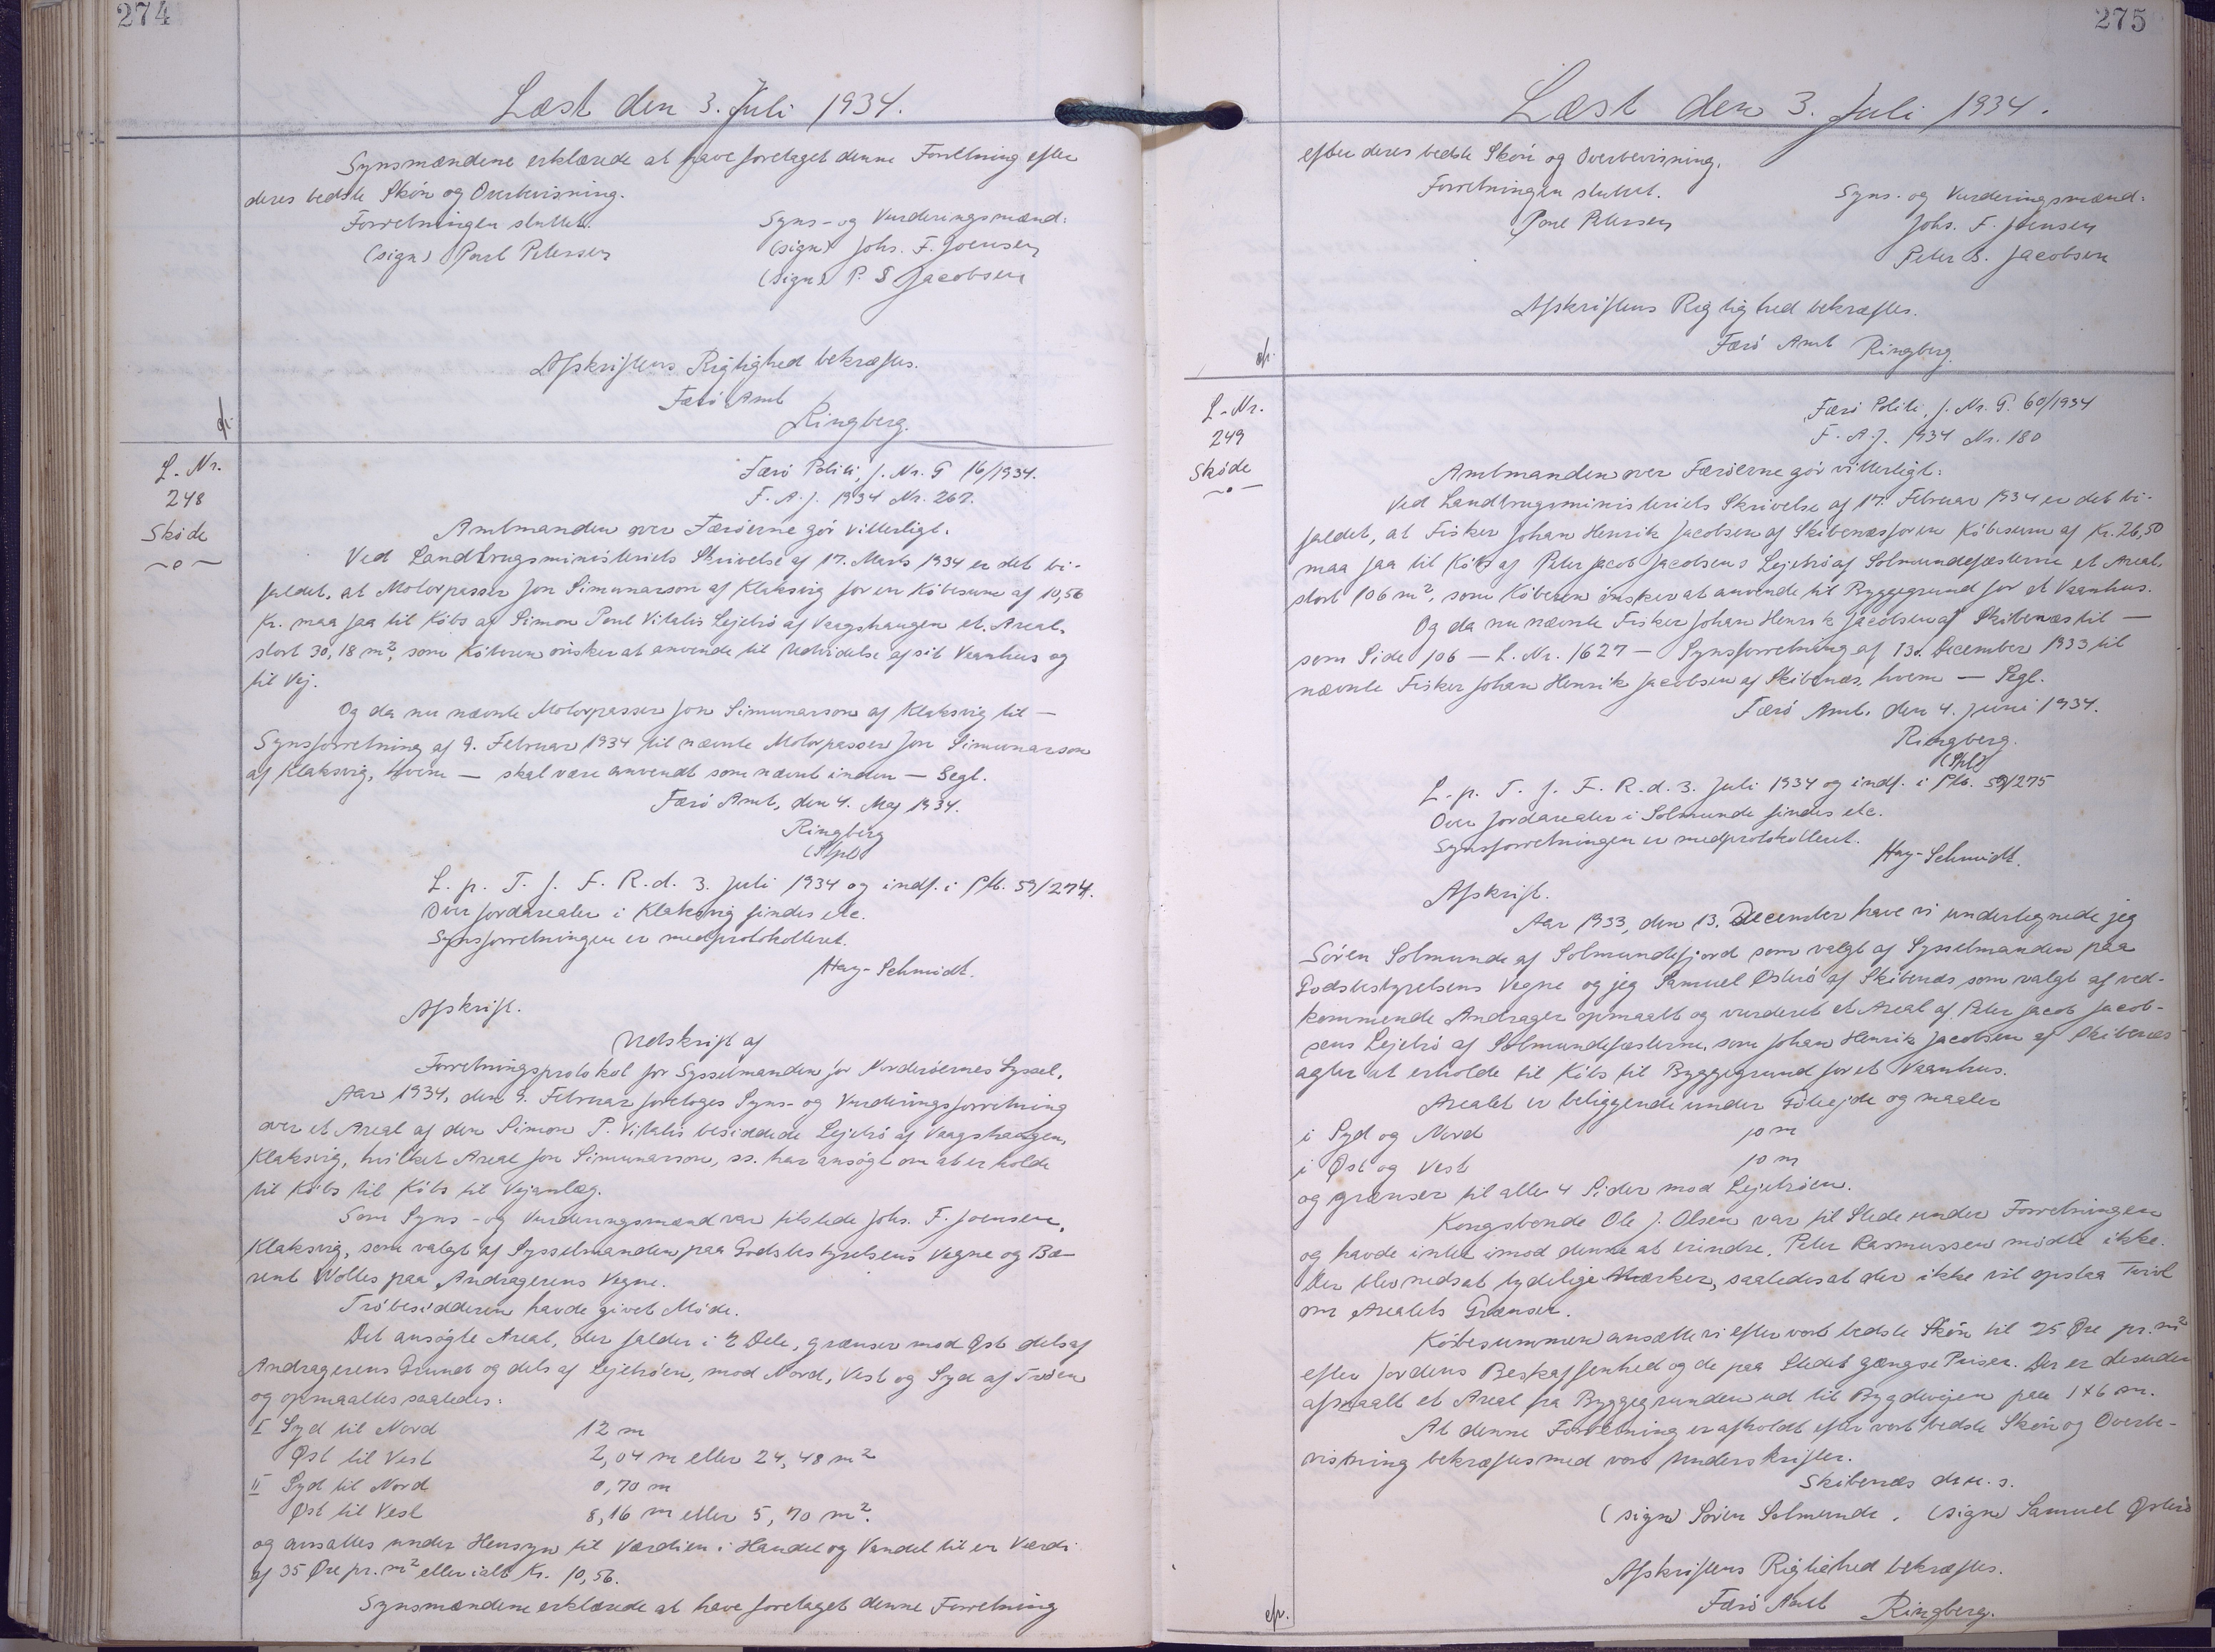 274
Læst den 3. Juli 1934.
Synsmændene erklærede at have foretaget denne Forretning efter
deres bedste Skön og Overbevisning.
Forretningen sluttet.
Syns- og Vurderingsmænd:
(sign) Poul Petersen
(sign) Johs. F. Joensen
(sign) P. S Jacobsen
Afskriftens Rigtighed bekræftes.
Færö Amt
Ringberg.
L. Nr.
248
Sköde
Færö Politi, J. Nr. G 16/1934.
F. A. J. 1934 Nr. 267.
Amtmanden over Færöerne gör vitterligt.
Ved Landbrugsministeriets Skrivelse af 17. Marts 1934 er det bi-
faldet, at Motorpasser Jon Simunarson af Klaksvig for en Köbesum af 10,56
Kr. maa faa til Köbs af Simon Poul Vitalis Lejetrö af Vaagshaugen et Areal,
stort 30,18 m², som Köberen önsker at anvende til Udvidelse af sit Vaanhus og
til Vej.
Og da nu nævnte Motorpasser Jon Simunarson af Klaksvig til —
Synsforretning af 9. Februar 1934 til nævnte Motorpasser Jon Simunarson
af Klaksvig, hvem — skal være anvendt som nævnt inden — Segl.
Færö Amt, den 4. Maj 1934.
Ringberg
(Stpl)
L. p. T. f. F. R. d. 3. Juli 1934 og indf. i Ptk. 59/274.
Over Jordarealer i Klaksvig findes etc.
Synsforretningen er medprotokolleret.
Hay-Schmidt.
Afskrift.
Udskrift af
Forretningsprotokol for Sysselmanden for Norderöernes Syssel.
Aar 1934, den 9. Februar foretoges Syns- og Vurderingsforretning
over et Areal af den Simon P. Vitalis besiddede Lejetrö af Vaagshaugen,
Klaksvig, hvilket Areal Jon Simunarson, ss. har ansögt om at erholde
til Köbs til Köbs til Vejanlæg.
Som Syns- og Vurderingsmænd var tilstede Johs. F. Joensen,
Klaksvig, som valgt af Sysselmanden paa Godsbestyrelsens Vegne og Bæ-
rent Wolles paa Andragerens Vegne.
Tröbesidderen havde givet Möde.
Det ansögte Areal, der falder i 2 Dele, grænser mod Øst dels af
Andragerens Grund og dels af Lejetröen, mod Nord, Vest og Syd af Tröen
og opmaaltes saaledes:
I Syd til Nord 12 m
Øst til Vest 2,04 m eller 24,48 m²
II Syd til Nord 0,70 m
Øst til Vest 8,16 m eller 5,70 m².
og ansattes under Hensyn til Værdien i Handel og Vandel til en Værdi
af 35 Øre pr. m² eller ialt Kr. 10,56.
Synsmændene erklærede at have foretaget denne Forretning
275
Læst den 3. Juli 1934.
efter deres bedste Skön og Overbevisning.
Forretningen sluttet.
Syns- og Vurderingsmænd:
Poul Petersen
Johs. F. Joensen
Peter S. Jacobsen
Afskriftens Rigtighed bekræftes.
Færö Amt Ringberg.
L. Nr.
249
Sköde
Færö Politi, J. Nr. G. 60/1934
F. A. J. 1934 Nr. 180
Amtmanden over Færöerne gör vitterligt:
Ved Landbrugsministeriets Skrivelse af 17. Februar 1934 er det bi-
faldet, at Fisker Johan Henrik Jacobsen af Skibenæs for en Köbesum af Kr. 26,50
maa faa til Köbs af Peter Jacob Jacobsens Lejetrö af Solmundefæsterne et Areal,
stort 106 m², som Köberen önsker at anvende til Byggegrund for et Vaanhus.
Og da nu nævnte Fisker Johan Henrik Jacobsen af Skibenæs til —
som Side 106 — L. Nr. 1627 — Synsforretning af 13. December 1933 til
nævnte Fisker Johan Henrik Jacobsen af Skibenæs, hvem — Segl.
Færö Amt, den 4. Juni 1934.
Ringberg.
(Stpl)
L. p. T. f. F. R. d. 3. Juli 1934 og indf. i Ptk. 59/275
Over Jordarealer i Solmunde findes etc.
Synsforretningen er medprotokolleret.
Hay-Schmidt.
Afskrift.
Aar 1933, den 13. December have vi undertegnede jeg
Sören Solmunde af Solmundefjord som valgt af Sysselmanden paa
Godsbestyrelsens Vegne og jeg Samuel Österö af Skibenæs som valgt af ved-
kommende Andrager opmaalt og vurderet et Areal af Peter Jacob Jacob-
sens Lejetrö af Solmundefæsterne, som Johan Henrik Jacobsen af Skibenæs
agter at erholde til Köbs til Byggegrund for et Vaanhus.
Arealet er beliggende under Götuejde og maaler
i Syd og Nord 10 m
i Øst og Vest 10 m
og grænser til alle 4 Sider mod Lejetröen.
Kongsbonde Ole J. Olsen var til Stede under Forretningen
og havde intet imod denne at erindre. Peter Rasmussen mödte ikke.
Der blev nedsat tydelige Mærker, saaledes at der ikke vil opstaa Tvivl
om Arealets Grænser.
Köbesummen ansætte vi efter vort bedste Skön til 25 Øre pr. m²
efter Jordens Beskaffenhed og de paa Stedet gængse Priser. Der er desuden
afmaalt et Areal fra Byggegrunden ud til Bygdevejen paa 1x6 m.
At denne Forretning er afholdt efter vort bedste Skön og Overbe-
visning bekræftes med vore Underskrifter.
Skibenæs d. u. s.
(sign) Sören Solmunde. (sign) Samuel Österö
Afskriftens Rigtighed bekræftes.
Færö Amt Ringberg.